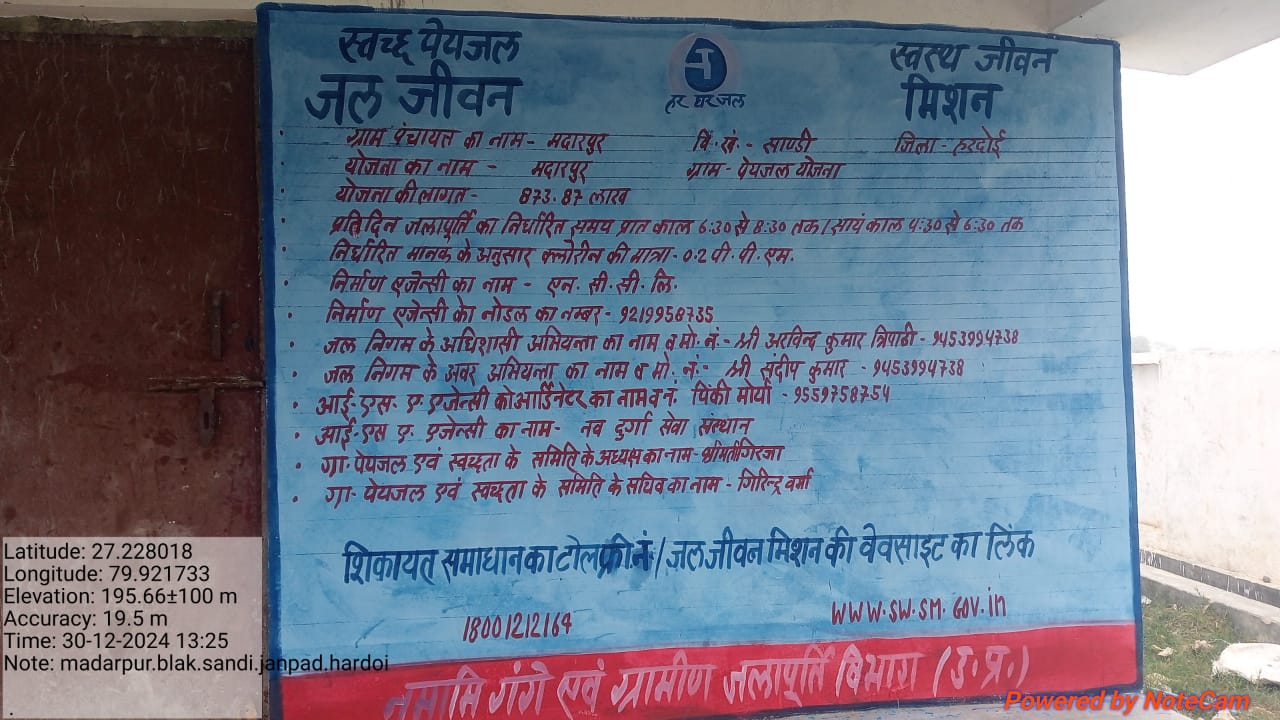 स्वच्छ पेयजल
जल जीवन
हर घर जल
स्वस्थ जीवन
मिशन
ग्राम पंचायत का नाम - मदारपुर वि. खं. - साण्डी जिला - हरदोई
योजना का नाम - मदारपुर ग्राम - पेयजल योजना
योजना की लागत - 873.87 लाख
प्रतिदिन जलापूर्ति का निर्धारित समय प्रात काल 6:30 से 8:30 तक / सायं काल 4:30 से 6:30 तक
निर्धारित मानक के अनुसार क्लोरीन की मात्रा - 0.2 पी. पी. एम.
निर्माण एजेन्सी का नाम - एन. सी. सी. लि.
निर्माण एजेन्सी के नोडल का नम्बर - 9219958735
जल निगम के अधिशासी अभियन्ता का नाम व मो. नं. - श्री अरविन्द कुमार त्रिपाठी - 9453994738
जल निगम के अवर अभियन्ता का नाम व मो. नं. - श्री संदीप कुमार - 9453994738
आई.एस. ए एजेन्सी कोआर्डिनेटर का नाम व नं. पिंकी मोर्या - 9559758754
आई.एस ए. एजेन्सी का नाम - नव दुर्गा सेवा संस्थान
ग्रा. पेयजल एवं स्वच्छता के समिति के अध्यक्ष का नाम - श्रीमती गिरजा
ग्रा. पेयजल एवं स्वच्छता के समिति के सचिव का नाम - गिरिन्द्र वर्मा
शिकायत समाधान का टोल फ्री नं / जल जीवन मिशन की वेवसाइट का लिंक
18001212164 www.sw.sm.gov.in
नमामि गंगे एवं ग्रामीण जलापूर्ति विभाग (उ.प्र.)
Latitude: 27.228018
Longitude: 79.921733
Elevation: 195.66±100 m
Accuracy: 19.5 m
Time: 30-12-2024 13:25
Note: madarpur.blak.sandi.janpad.hardoi
Powered by NoteCam